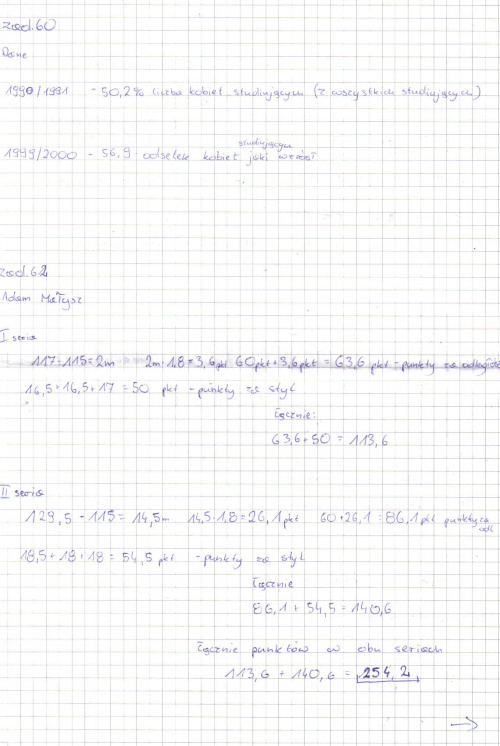 zad.60
Dane
1990/1991 - 50,2% liczba kobiet studiujących (z wszystkich studiujących)
studiujących
1999/2000 - 56,9 - odsetek kobiet jaki wzrósł
zad.62
Adam Małysz
I seria
117-115=2m 2m·1,8=3,6pkt 60pkt+3,6pkt = 63,6 pkt - punkty za odległość
16,5+16,5+17 = 50 pkt - punkty za styl
Łącznie:
63,6+50 = 113,6
II seria
129,5 - 115 = 14,5m 14,5·1,8=26,1pkt 60+26,1 = 86,1pkt punkty za odl
18,5+18+18 = 54,5 pkt - punkty za styl
Łącznie
86,1 + 54,5 = 140,6
Łącznie punktów w obu seriach
113,6 + 140,6 = 254,2